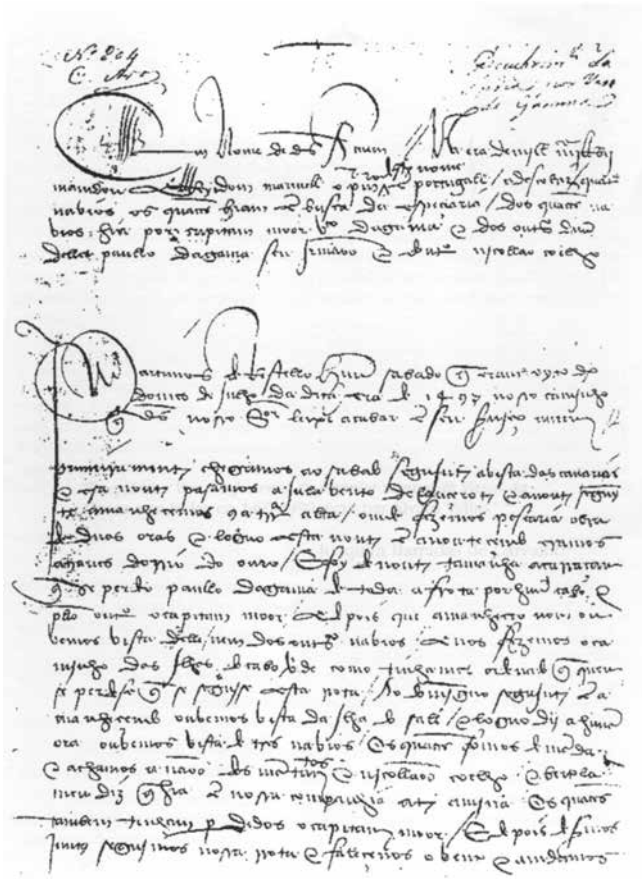 Nº 804
Em Nome de ds Amem Na era de mill
mandou el Rey dom manuell o pmro portugall / a descobrir quatro
navios os quaees hiam em busca da especiaria / dos quaees na
vios hia por capitam moor Vco dagama e dos outrs dum
delles paullo dagama seu Irmaoo e doutro nicollao coelho
artimos de Restello huum sabado q eram oyto dias
do mes de julho da dita era de 1497 nosso caminho
q ds nosso Sor leixe acabar em seu serviço amem
primeyramente chegamos ao sabado seguinte a vista das canareas
e esa noute pasamos a julavento de lançarote e a noute segujn
te amanhecemos com a terra alta / omde fezemos pescaria obra
de duas oras e logo esta noute em anoutecendo eramos
atraves do rrio do ouro / E foy de noute tamanha a çarraçam
q se perdeo paullo dagama de toda a frota por huum cabo e
pello outro o capitam moor / E depois que amanheceo nom ou
vemos vista delle nem dos outros navios / e nos fezemos o ca
minho das Ilhas do cabo verde como tinham ordenado q quem
se perdese q se seguise esta rota / Ao domingo seguinte em a
manhecendo ouvemos vista da Ilha do sall / e loguo dy a huma
ora ouvemos vista de tres navios / os quaees fomos demandar
e achamos a naoo dos mantimentos e nicollao coelho e bertola
meu diz q hia em nossa companhia ate a mina os quaees
tambem tinham perdido o capitam moor / E depois de sermos
juntos seguimos nossa rrota e faleceonos o vento e andamos